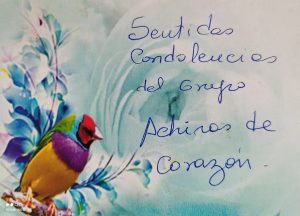 Sentidas
Condolencias
del Grupo
Achiras de
Corazón.